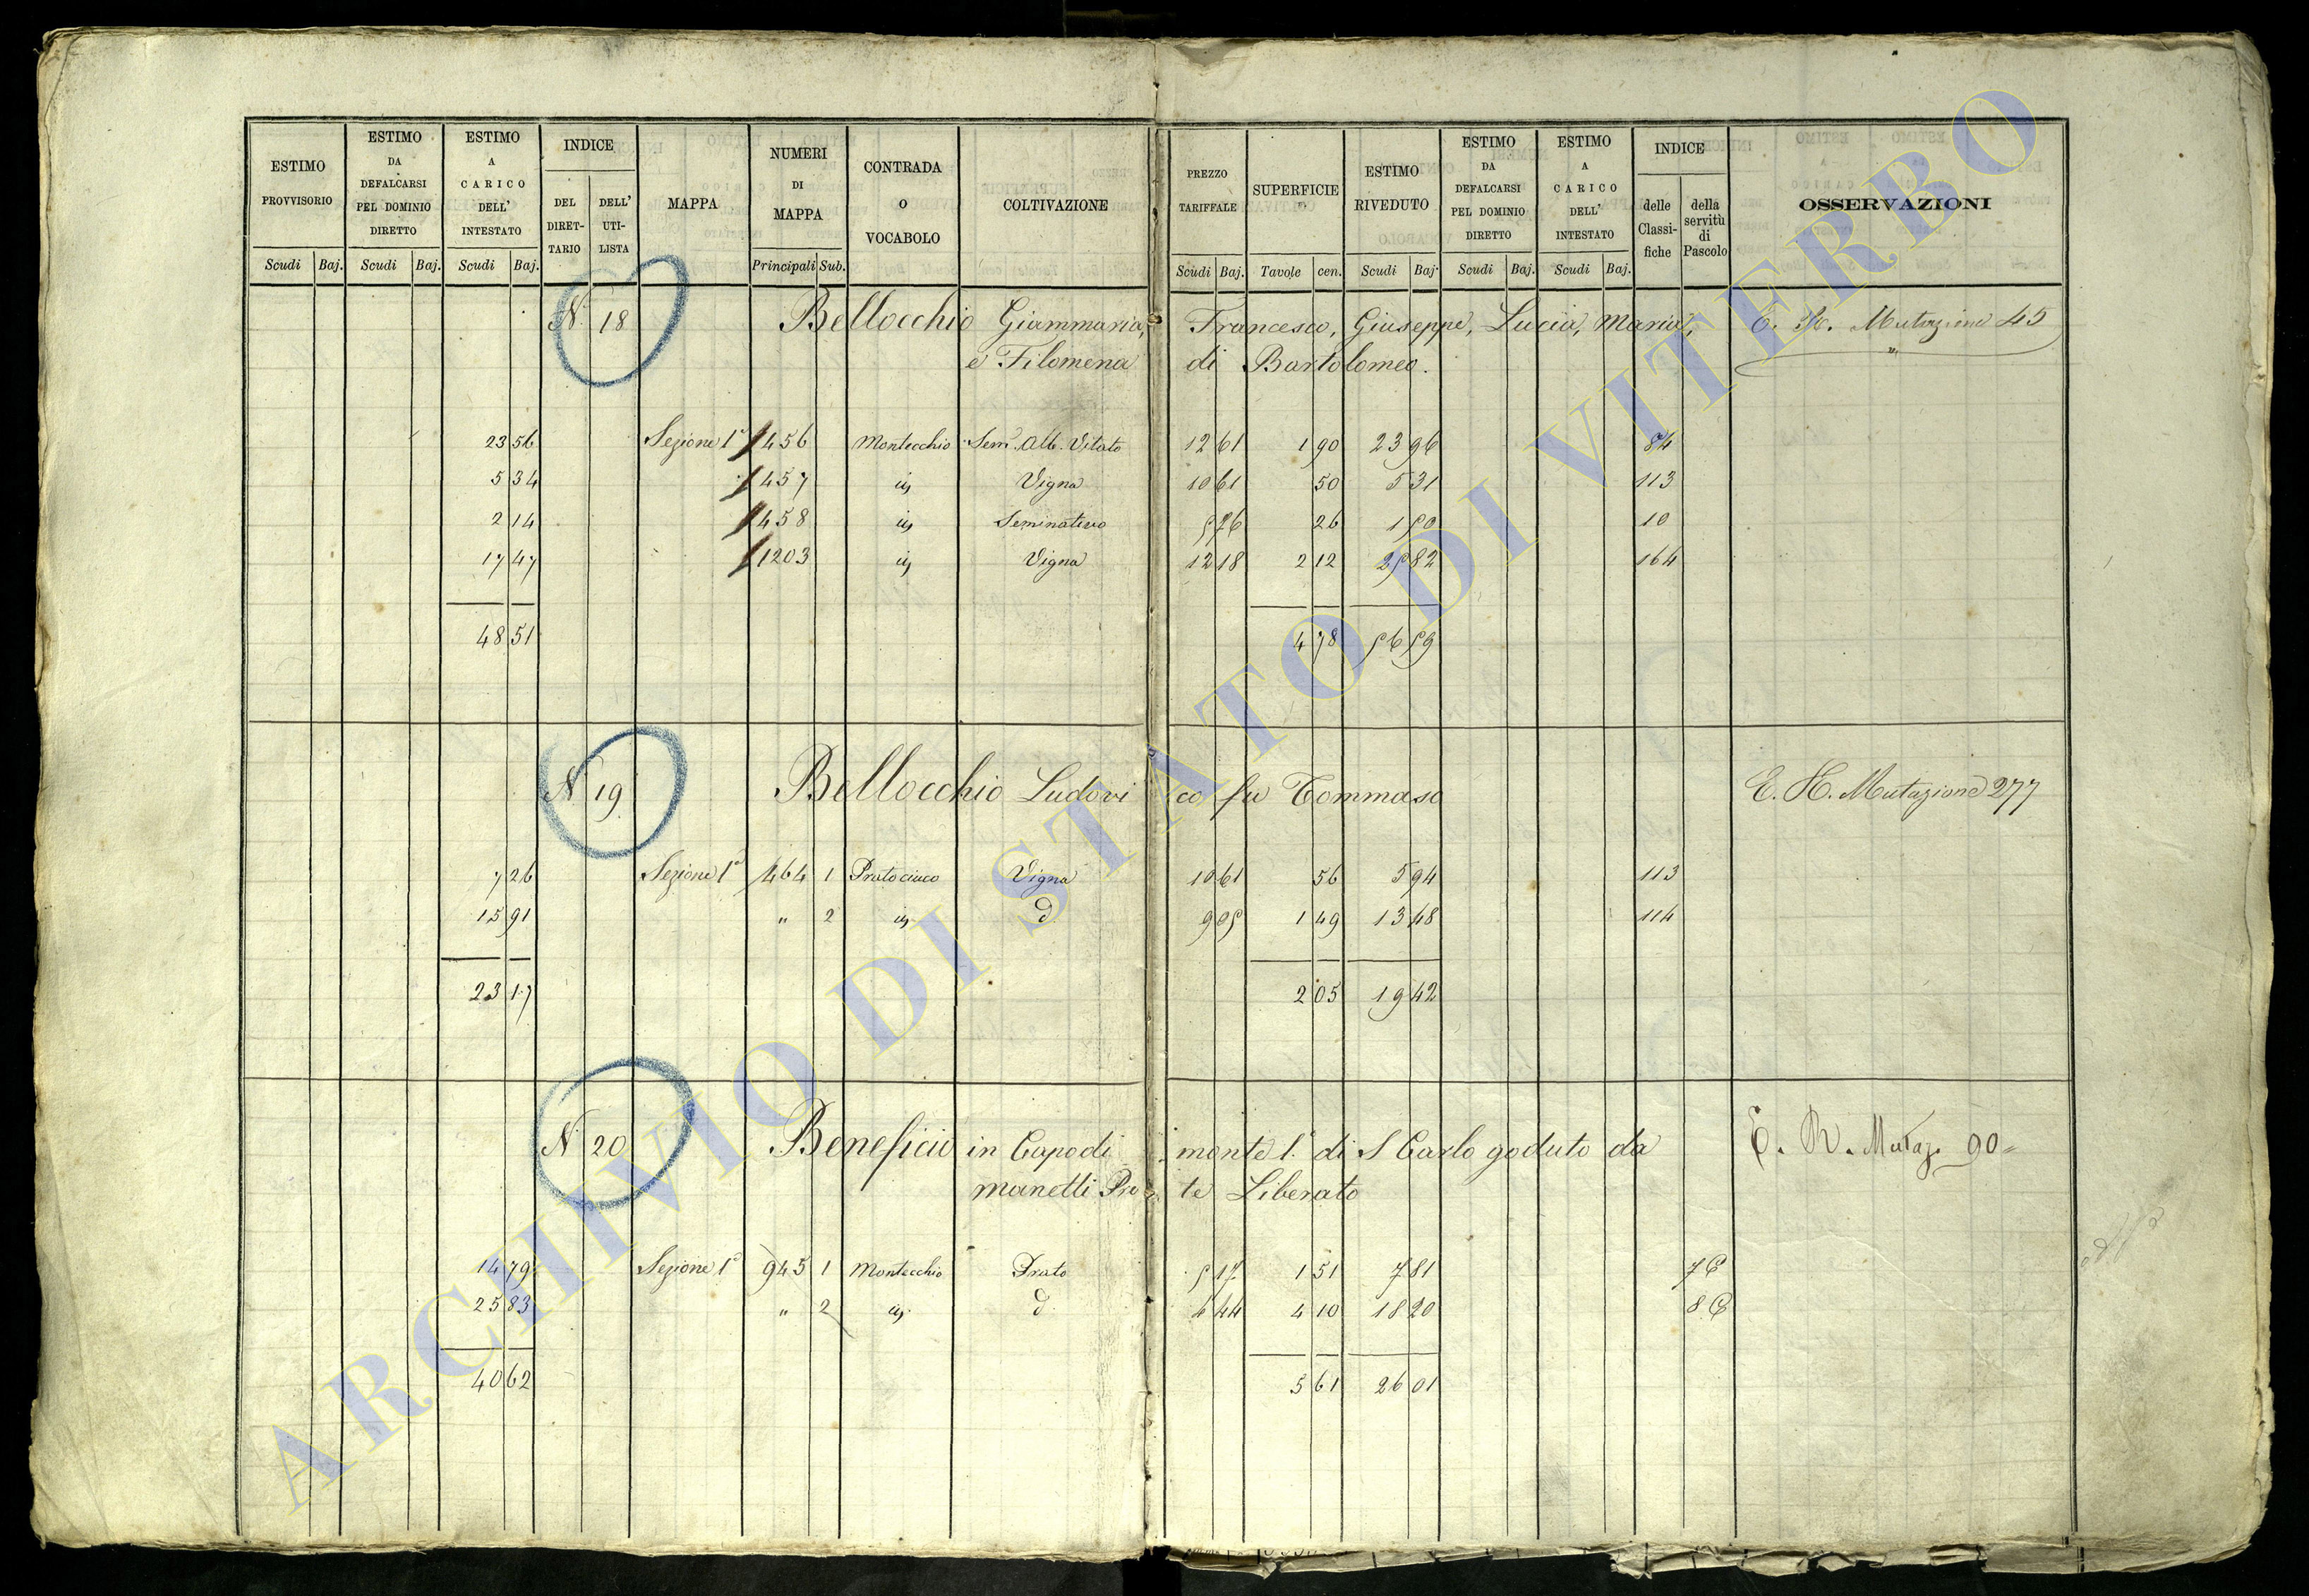 ESTIMO PROVVISORIO Scudi Baj.
ESTIMO DA DEFALCARSI PEL DOMINIO DIRETTO Scudi Baj.
ESTIMO A CARICO DELL' INTESTATO Scudi Baj.
INDICE DEL DIRET-TARIO DELL' UTI-LISTA
MAPPA
NUMERI DI MAPPA Principali Sub.
CONTRADA O VOCABOLO
COLTIVAZIONE
PREZZO TARIFFALE Scudi Baj.
SUPERFICIE Tavole cen.
ESTIMO RIVEDUTO Scudi Baj.
ESTIMO DA DEFALCARSI PEL DOMINIO DIRETTO Scudi Baj.
ESTIMO A CARICO DELL' INTESTATO Scudi Baj.
INDICE delle Classi-fiche della servitù di Pascolo
OSSERVAZIONI
N. 18 Bellocchio Giammaria, Francesco, Giuseppe, Lucia, Maria, Mutazione 45
e Filomena di Bartolomeo.
23 56 Sezione 1ª 456 Montecchio Sem. Alb. Vitato 12 61 1 90 23 96 84
5 34 457 id. Vigna 10 61 50 5 31 113
2 14 458 id. Seminativo 5 76 26 1 50 10
17 47 1203 id. Vigna 12 18 2 12 25 82 164
48 51 4 78 56 59
N 19 Bellocchio Ludovi co fu Tommaso E. H. Mutazione 277
7 26 Sezione 1ª 464 1 Pratociuco Vigna 10 61 56 5 94 113
15 91 " 2 id. d 9 05 1 49 13 48 114
23 17 2 05 19 42
N. 20 Beneficio in Capodi monte 1.° di S Carlo goduto da E. R. Mutaz. 90=
manetti Pre te Liberato
14 79 Sezione 1ª 945 1 Montecchio Prato 5 17 1 51 7 81 7
25 83 " 2 id. d 4 44 4 10 18 20 8
40 62 5 61 26 01
ARCHIVIO DI STATO DI VITERBO